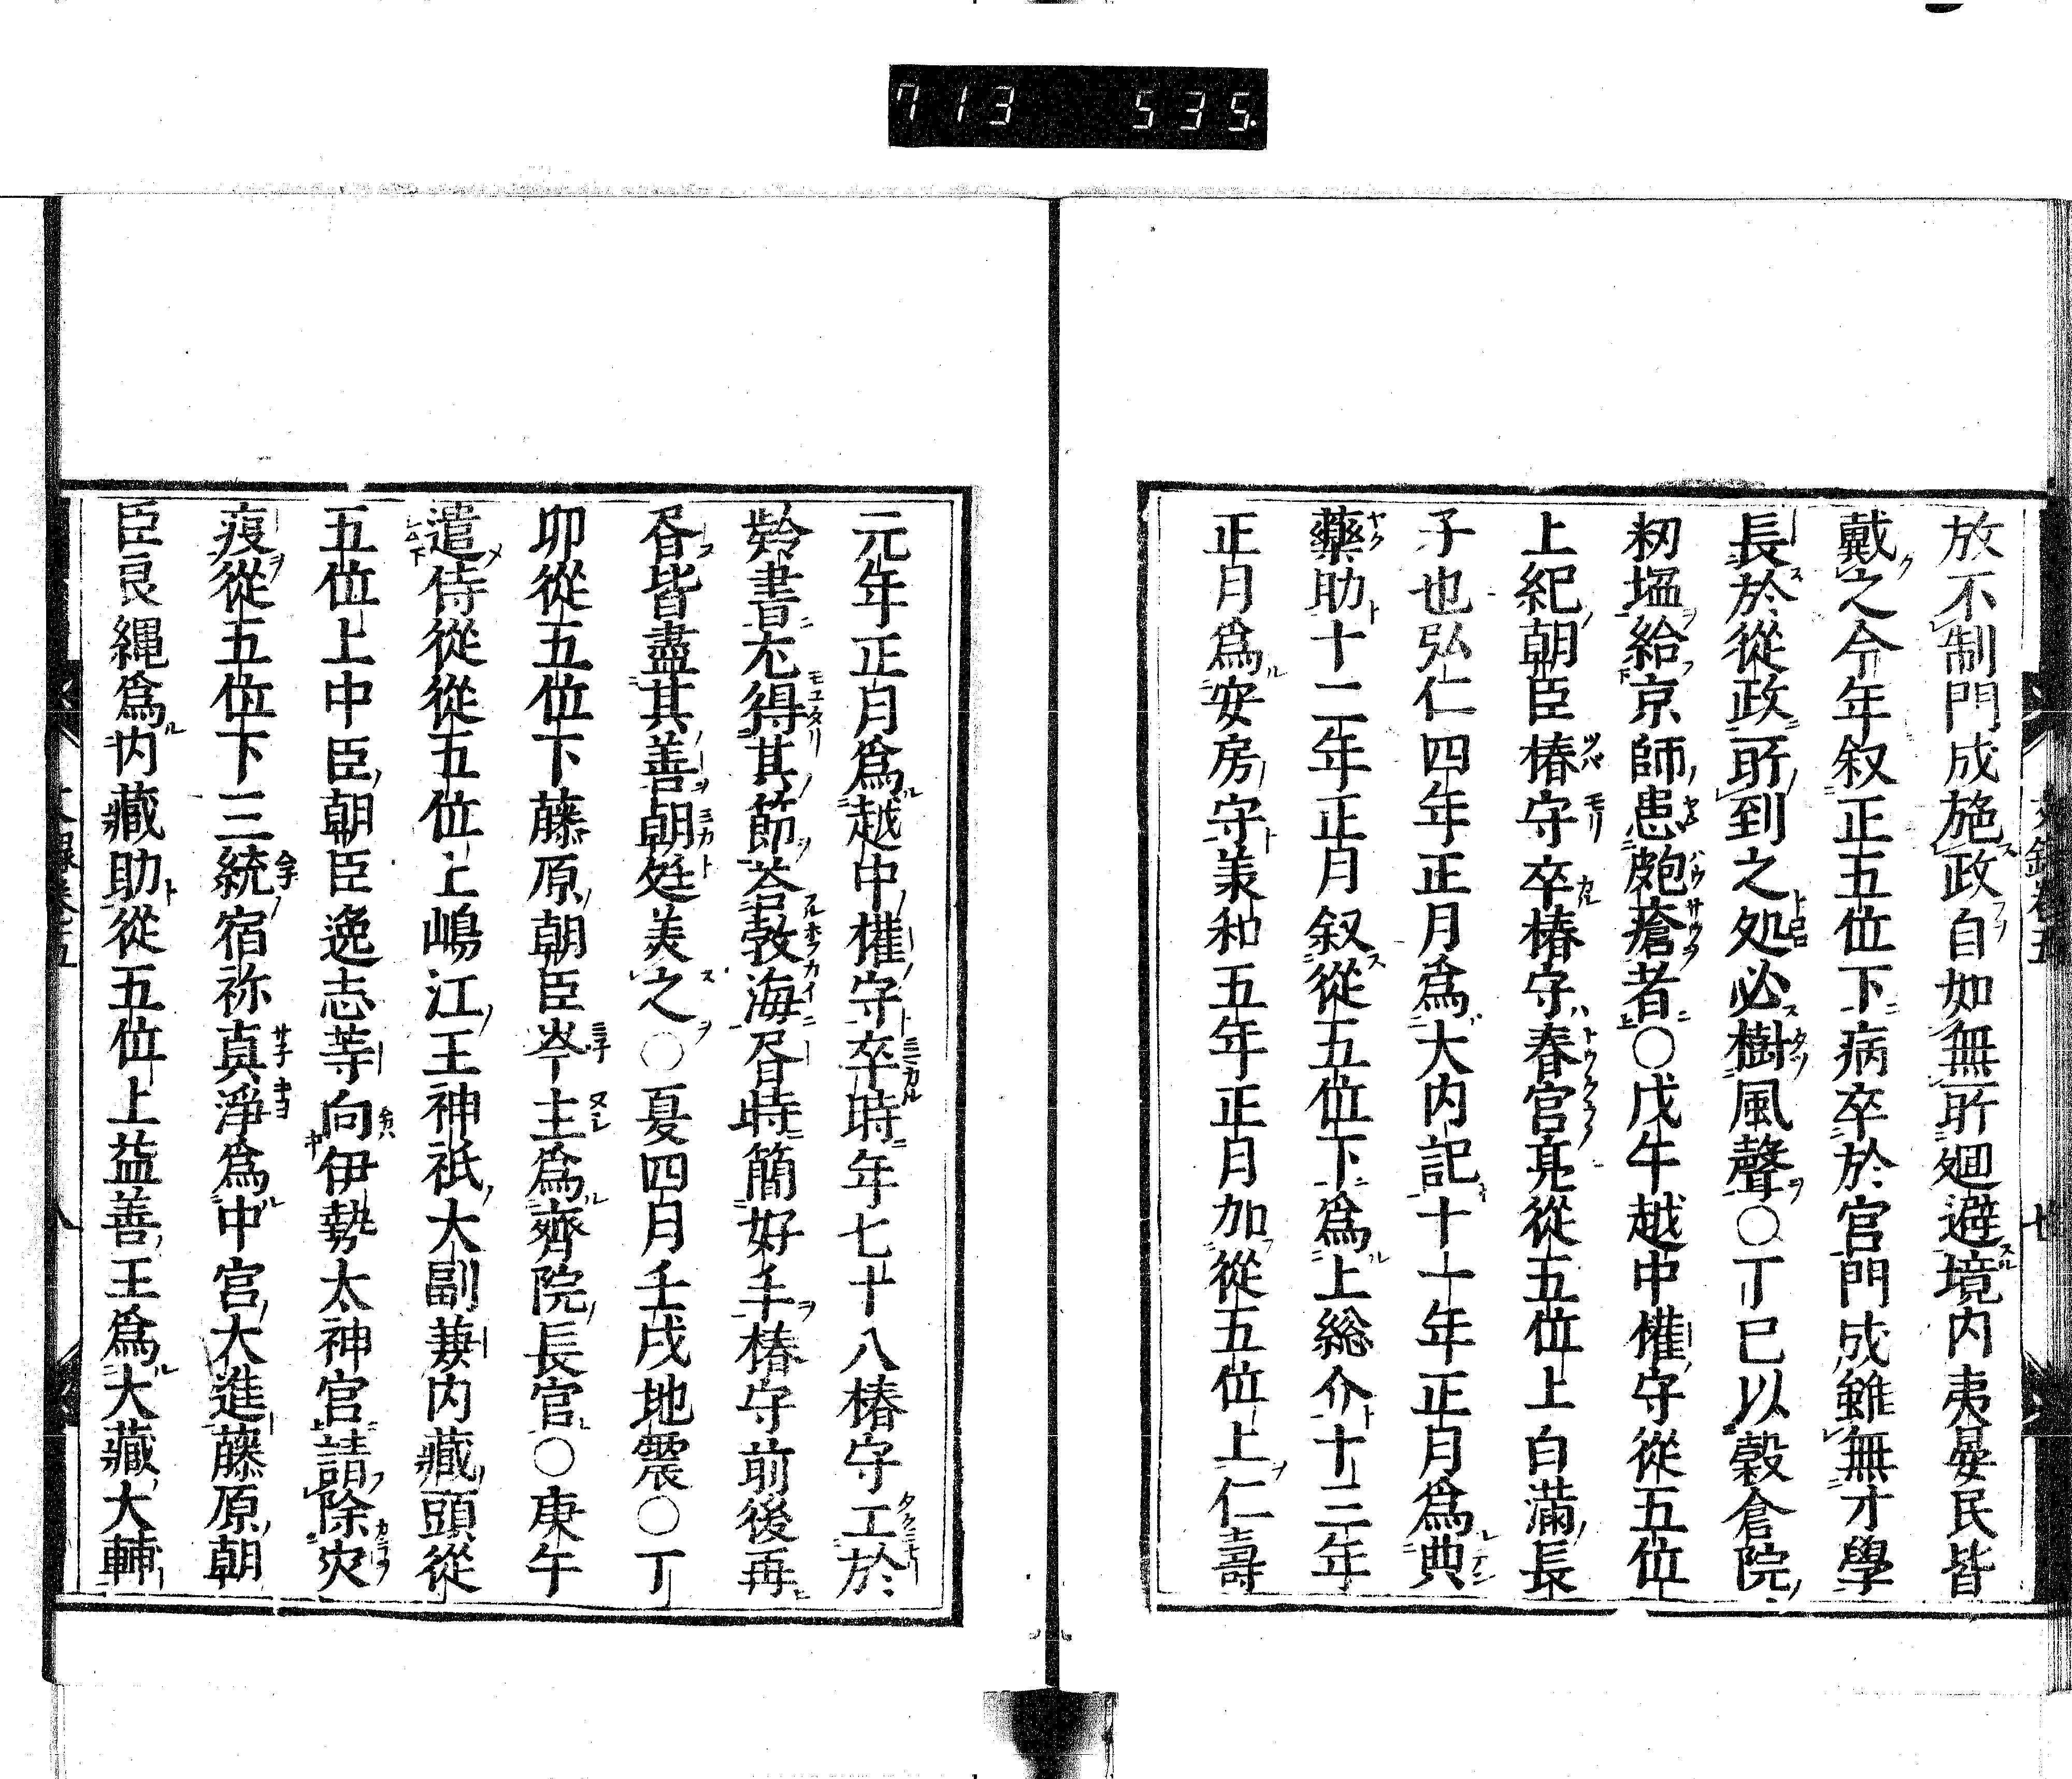 713 535.
放不制門成施政自如無所廻避境内夷晏民皆
戴之今年叙正五位下病卒於官門成雖無才學
長於從政所到之処必樹風聲○丁巳以穀倉院
籾塩給京師患皰瘡者○戊午越中權守從五位
上紀朝臣椿守卒椿守春宮亮從五位上白滿長
子也弘仁四年正月爲大内記十一年正月爲典
藥助十二年正月叙從五位下爲上総介十三年
正月爲安房守羕和五年正月加從五位上仁壽
元年正月爲越中權守卒時年七十八椿守工於
㱓書尤得其節荅敦海昏時簡好手椿守前後再
昏皆盡其善朝廷美之○夏四月壬戌地震○丁
卯從五位下藤原朝臣岑主爲齊院長官○庚午
遣侍從從五位上嶋江王神祇大副兼内藏頭從
五位上中臣朝臣逸志等向伊勢太神宮請除灾
疫從五位下三統宿祢真淨爲中宮大進藤原朝
臣良縄爲内藏助從五位上益善王爲大藏大輔